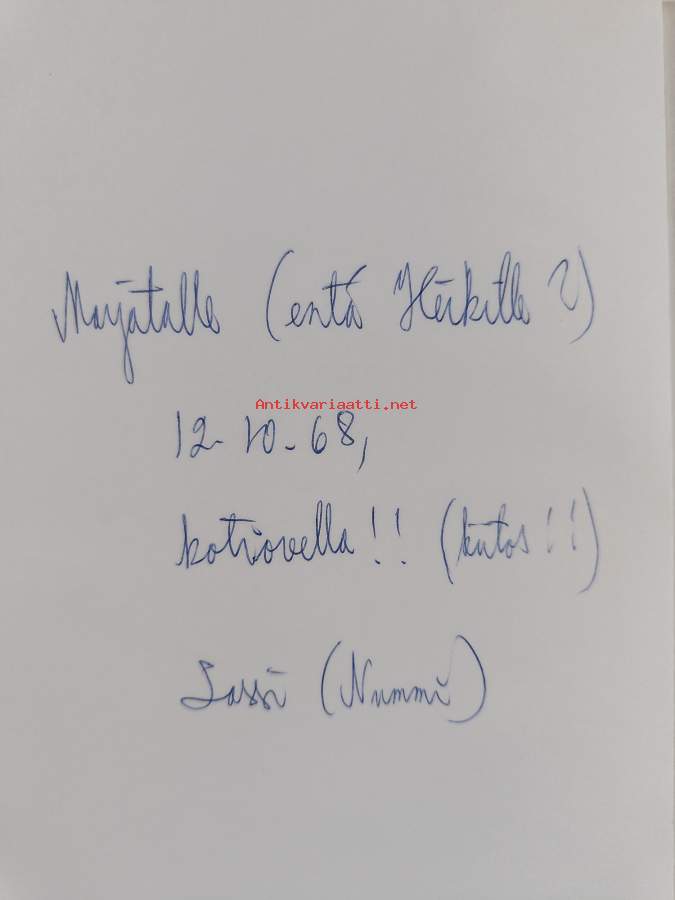 Marjatalle (entä Heikille?)
Antikvariaatti.net
12-10-68,
kotiovella!! (kiitos!!)
Lassi (Nummi)